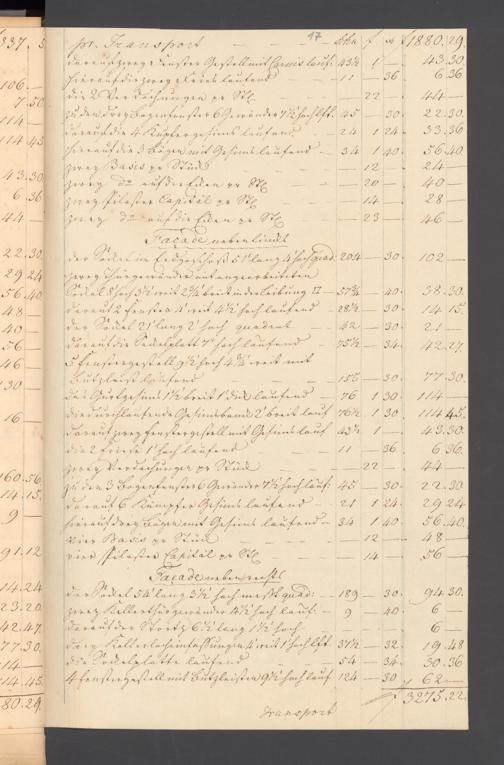 17
pr. Transport — — — Schu f x f 1880.29.
darauf zwey Fenster Gestell mit Cornis lauf. 43½ 1 — 43.30
hierauf die zwey Friese laufend — 11 — 36 6 36
die 2 Verdachungen pr Stk — 22 — 44 —
zu den drey Bogenfenster 6 Gewänder 7½ hoch lft. 45 — 30. 22.30.
darauf die 4 Kämpfer gesims laufend — 24 1 24. 33.36
hierauf die 3 Bögen mit Gesims laufend — 34 1 40. 56.40.
zwey Basis pr Stück — 12 — 24 —
zwey do auf die Eken pr Stk — 20 — 40 —
zwey Pilaster Capitäl pr Stk — 14 — 28 —
zwey do auf die Eken pr Stk — 23 — 46 —
Façade neben links
der Sockel im Erdgeschoß 51 lang 4 hoch quad. 204 — 30. 102 —
zwey Thürgewänder mit angearbeiteten
Sockel 8 hoch 3½ weit 2¾ breit in der Leibung 57¾ — 40. 38.30.
darauf 2 Fenster 4 weit 4½ hoch laufend — 28½ — 30. 14.15.
der Sockel 21 lang 2 hoch quadrat — 42 — 30. 21 —
darauf die Sockelplatt 7" hoch laufend — 75½ — 34. 42.27.
5 Fenstergestell 9½ hoch 4¾ weit mit
Putzleist laufend — 155 — 30. 77.30.
das Gurtgesims 1½ breit 1 dick laufend — 76 1 30. 114 —
die durchlaufende Gesimsbank 2 breit lauf 76½ 1 30. 114 45.
darauf zwey Fenstergestell mit Gesims lauf 43½ 1 — 43.30.
die 2 Friese 1 hoch laufend — 11 — 36. 6 36.
zwey Verdachungen pr Stück — 22 — 44 —
zu den 3 Bogenfenster 6 Gewänder 7½ hoch lauf. 45 — 30. 22.30
darauf 6 Kämpfer Gesims laufend — 21 1 24. 29 24
hierauf drey Bögen mit Gesims laufend — 34 1 40. 56.40.
vier Basis pr Stück — 12 — 48 —
vier Pilaster Capitäl pr Stk — 14 — 56 —
Façade neben rechts
der Sockel 54 lang 3½ hoch mißt quad: — 189 — 30. 94.30.
zwey Kellerthürgewänder 4½ hoch lauf. — 9 — 40. 6 —
darauf der Sturtz 6½ lang 1½ hoch 6 —
drey Kellerlocheinfassungen 4 weit 1 hoch lft. 37½ — 32. 19.48
die Sockelplatte laufend — 54 — 34. 30.36
4 Fenstergestell mit Putzleisten 9½ hoch lauf 124 — 30. 62 —
f 3275.22.
Transport
337.
106.—
7.30
114 —
114.45
43.30
6.36
44 —
22.30.
29 24
56.40
48 —
40 —
56 —
46 —
130 —
16 —
160.56
14.15.
9 —
91.12
14.24
23.20.
42.47.
77.30.
114 —
114.45.
80.29.